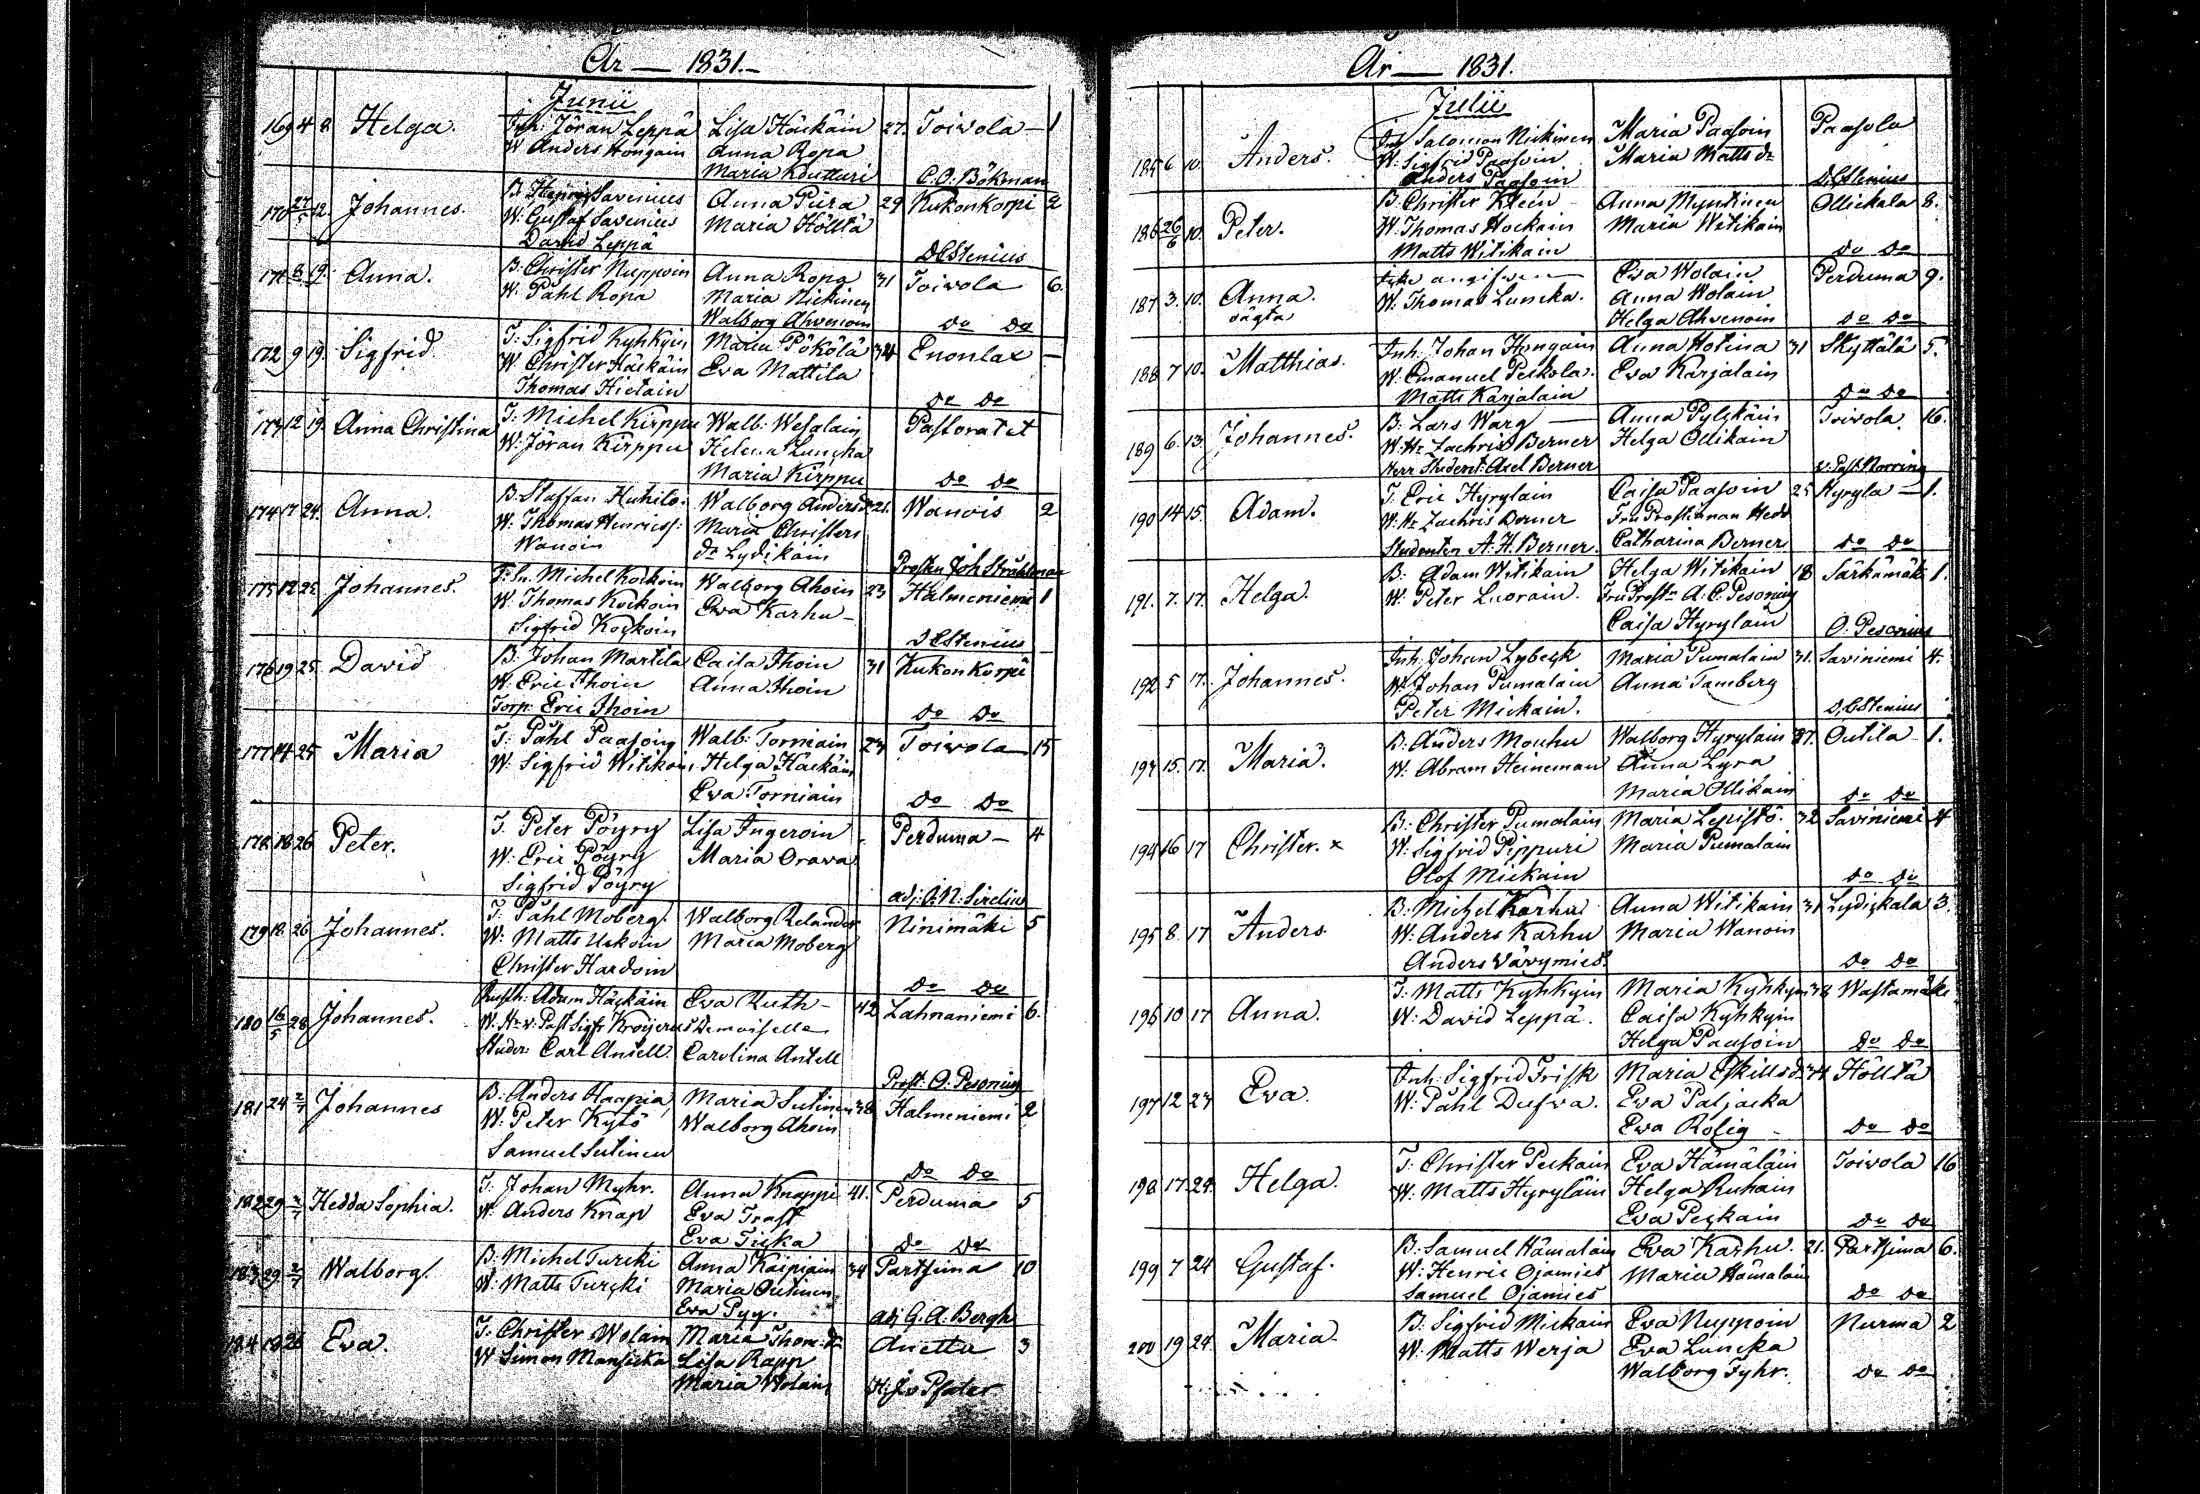 År — 1831.
Junii
169 4 8 Helga. Inh: Jöran Leppä Lisa Häckäin 27. Toivola — 1
W Anders Hongain Anna Ropa
Maria Koutturi C.O. Bökman
170 27/5 12. Johannes. B. Savenius Anna Pura 29 Kukonkorpi 2
W. Gustaf Savenius Maria Hölltä
David Leppä DCStenius
171 8 19. Anna. B. Christer Nuppoin Anna Ropa 31 Toivola 6.
W. Påhl Ropa Maria Nickinen
Walborg Ahvenoin do do
172 9 19. Sigfrid. T. Sigfrid Kyhkyin Maria Pökölä 34 Enonlax —
W Christer Häckäin Eva Mattila
Thomas Hietain do do
173 12 19. Anna Christina T. Michel Kirppu Walb: Wesalain Pastoratet
W. Jöran Kirppu Helena Luncka
Maria Kirppu do do
174 17 24. Anna. B. Staffan Huhilo. Walborg Andersdr 21. Wanois 2
W. Thomas Hinricss: Maria Christers
Wanoin dr Lydikäin Prosten Joh Stråhlman
175 12 25 Johannes. Michel Kockoin Walborg Ahoin 23 Halmeniemi 1
W. Thomas Kockoin Eva Karhu —
Sigfrid Kockoin DCStenius
176 19 25. David B. Johan Martila Caisa Ihoin 31 Kukonkorpi
W. Eric Ihoin Anna Ihoin
Torp. Eric Ihoin do do
177 14 25 Maria T. Påhl Paasoin Walb: Torniain 23 Toivola 15
W. Sigfrid Witikain Helga Häckäin
Eva Torniain do do
178 18 26 Peter. T. Peter Pöyry Lisa Ingeroin Perduma — 4
W. Eric Pöyry Maria Orawa
Sigfrid Pöyry adj: O.N. Sirelius
179 18. 26 Johannes. T. Påhl Moberg. Walborg Relander Ninimäki 5
W. Matts Uskoin Maria Moberg
Christer Hardoin do do
180 16/5 28 Johannes. Rusth. Adam Häckäin Eva Ruth — 42 Lahnaniemi 6.
W. Hr v. Past Sigfr Kroijerus Demoiselle
Studer: Carl Antell Carolina Antell Prost: O. Pesonius
181 24 2/7 Johannes B. Anders Haapia Maria Sutinen 38 Halmeniemi 2
W. Peter Kytö Walborg Ahoin
Samuel Sutinen do do
182 29 2/7 Hedda Sophia. T. Johan Myhr. Anna Knappe 41. Perduma 5
W. Anders Knap Eva Trast
Eva Triska do do
183 29 2/7 Walborg. B. Michel Turcki Anna Kaipiain 34 Partsima 10
W. Matts Turcki Maria Outinen
Eva Pyy. adj G. A. Bergh
184 18 26 Eva. T. Christer Wolain Maria Thom. dr Anetta 3
W Simon Mansicka Lisa Rapp
Maria Wolain
År — 1831.
Julii
185 6 10. Anders. Inh Salomon Nickinen Maria Paasoin Paasola
W: Sigfrid Paasoin Maria Matts dr
Anders Paasoin DCStenius
186 26/6 10. Peter. B. Christer Klein Anna Mynttinen Ollickala 8.
W. Thomas Hockain Maria Witikain
Matts Witikain do do
187 3. 10. Anna. Icke angifven Eva Wolain Perduma 9.
oägta W. Thomas Luncka. Anna Wolain
Helga Ahvenoin do do
188 7 10. Matthias. Inh: Johan Hongain Anna Hotina 31 Skyttälä 5.
W. Emanuel Peckola. Eva Karjalain
Matts Karjalain do do
189 6. 13. Johannes. B: Lars Warg — Anna Pylskäin Toivola. 16.
W. Hr Zachris Berner Helga Ollikain
Herr Student. Axel Berner v: Past. Norring
190 14 15. Adam. T. Eric Hyrylain Caisa Paasoin 25 Hyryla — 1.
W. Hr Zachris Berner Fru Prostinnan Hedv
Studenten A. H. Berner. Catharina Berner do do
191. 7. 17. Helga. B: Adam Witikain Helga Witikain 18 Särkämäki 1.
W: Peter Luorain. Fru Prostn A: C: Pesonius
Caisa Hyrylain O. Pesonius
192 5 17. Johannes. Inh. Johan Lybeck Maria Pumalain 31. Saviniemi 4.
W. Johan Pumalain Anna Tamberg
Peter Mickain. DCStenius
193 15. 17. Maria. B: Anders Mouhu Walborg Hyrylain 37. Outila 1.
W: Abram Heineman Anna Lyra
Maria Ollikain do do
194 16 17 Christer. x B: Christer Pumalain Maria Lepistö. 32 Saviniemi 4
W. Sigfrid Pippuri Maria Pumalain
Olof Mickain do do
195 8. 17 Anders B: Michel Karhu Anna Witikain 31 Lydickala 3.
W: Anders Karhu Maria Wanoin
Anders Vävymies. do do
196 10 17 Anna. T: Matts Kyhkyin Maria Kyhkyin 38 Wastamäki
W: David Leppä. Caisa Kyhkyin
Helga Paasoin do do
197 12 23 Eva. Inh: Sigfrid Frisk Maria Eskillsdr 34 Hölltä
W: Påhl Dufva. Eva Paljacka
Eva Rolig do do
198 17 24. Helga. T: Christer Peckain Eva Hämäläin Toivola 16
W: Matts Hyryläin Helga Ruhain
Eva Peckain do do
199 7 24 Gustaf. B: Samuel Hämalain Eva Karhu. 21. Partsima 6.
W: Henric Ojamies Maria Hämalain
Samuel Ojamies do do
200 19 24. Maria. B: Sigfrid Mickain Eva Nuppoin Nurma 2
W: Matts Werja Eva Luncka
Walborg Fyhr. do do